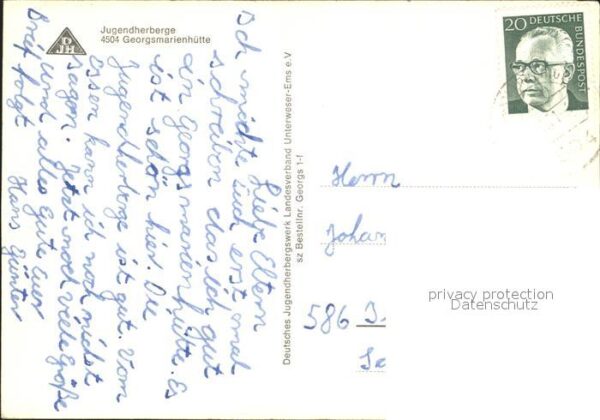 Jugendherberge
4504 Georgsmarienhütte
DJH
Liebe Eltern
Ich möchte Euch erst mal
schreiben das ich gut
in Georgsmarienhütte. Es
ist schön hier. Die
Jugendherberge ist gut. Vom
Essen kann ich noch nichst
sagen. Jetzt noch viele Grüße
und alles Gute Euer
Brief folgt Hans Günter
Deutsches Jugendherbergswerk Landesverband Unterweser-Ems e.V
sz Bestellnr. Georgs 1-f
20 DEUTSCHE
BUNDESPOST
Herrn
Johan
586 I.
privacy protection
Datenschutz